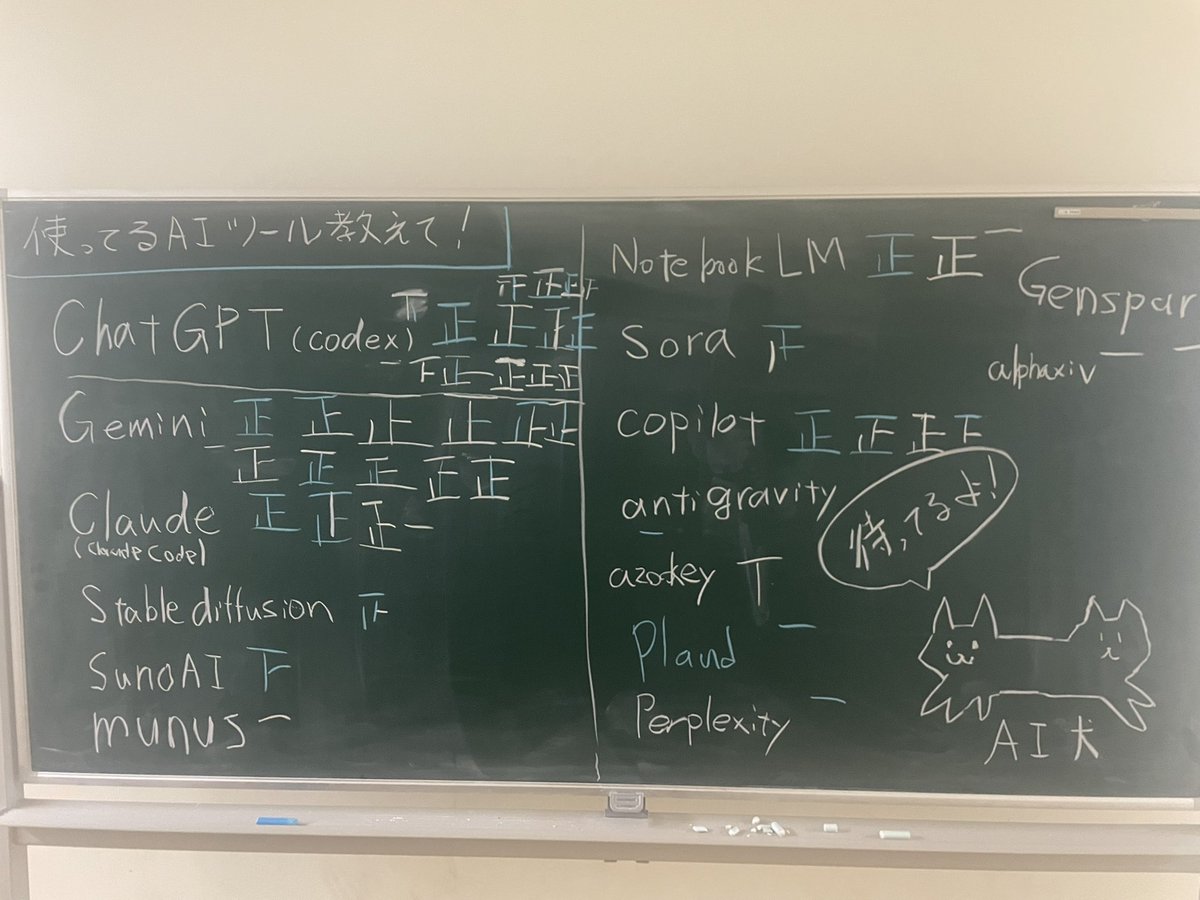 使ってるAIツール教えて!
ChatGPT (codex) 下 正 正 正
正 正 正 下
一 下 正 一 正 正 正
Gemini 一 正 正 正 正 正 正
正 正 正 正 正
Claude 正 正 正 一
(Claude Code)
Stable diffusion 正
SunoAI 下
munus 一
NotebookLM 正 正 一
Genspar
Sora 正
alphaxiv 一 一
copilot 正 正 正 下
antigravity
一
待ってるよ!
azookey 丅
Plaud 一
Perplexity 一
AI犬